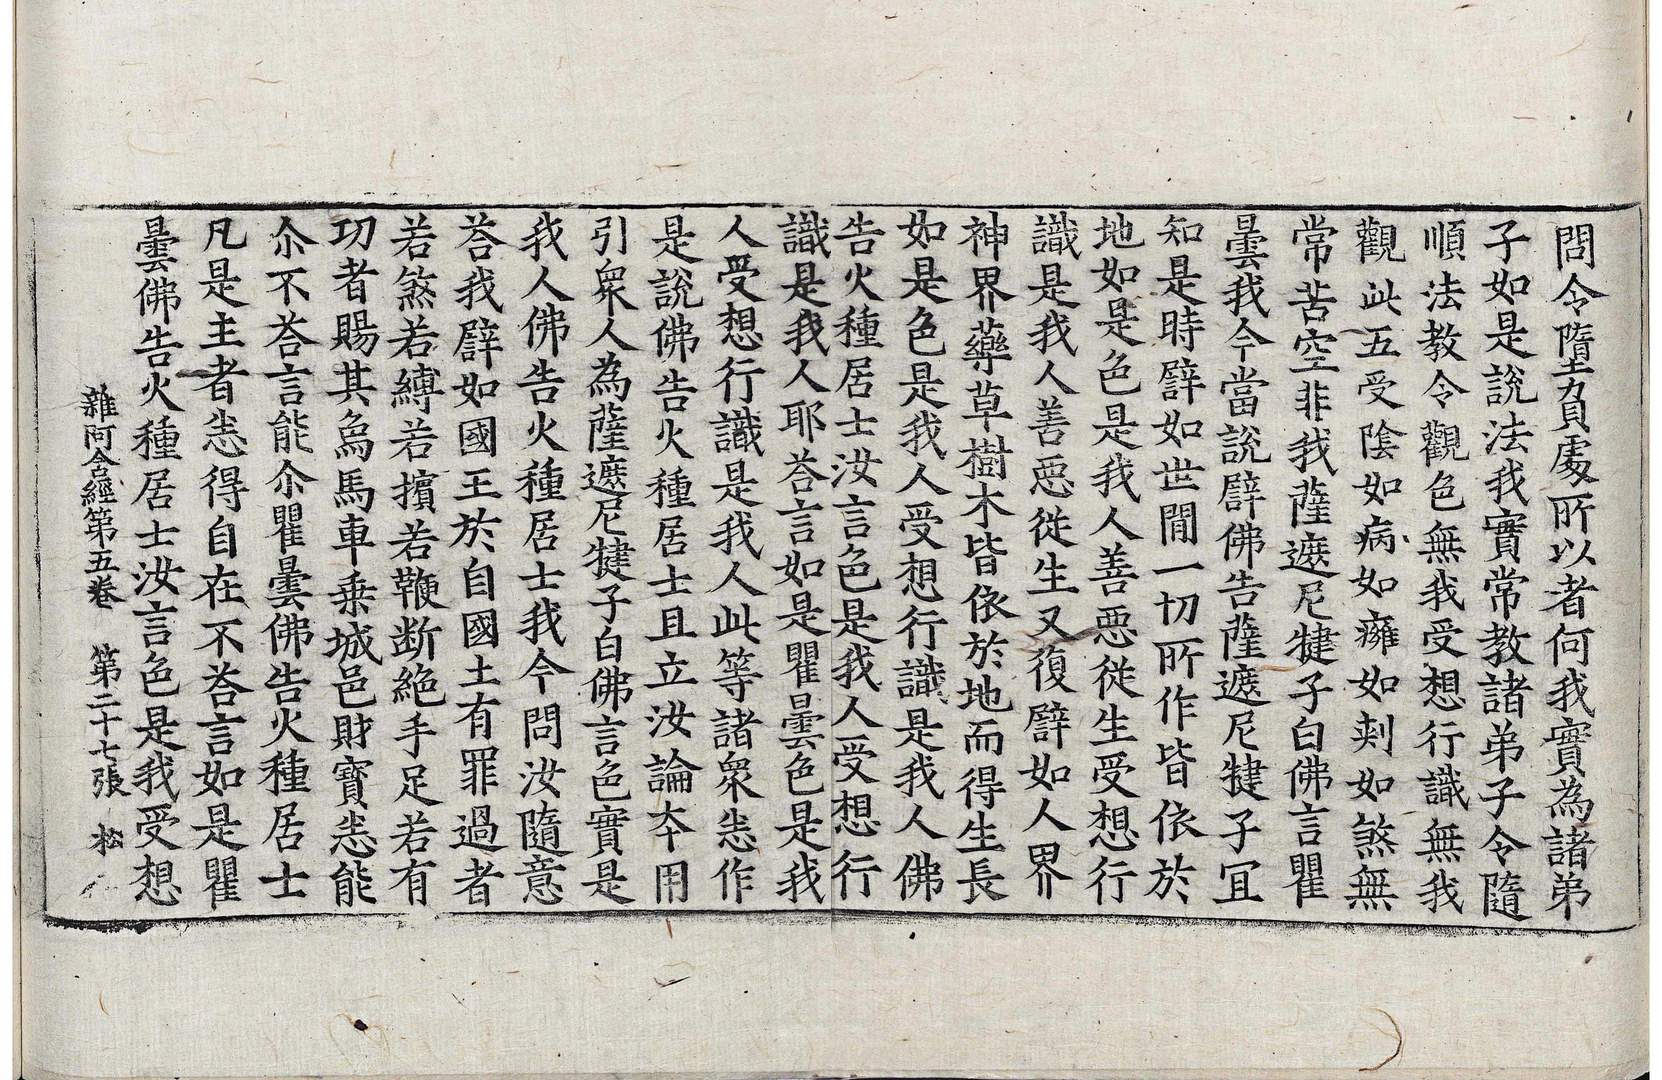 問令墮負處所以者何我實為諸弟
子如是說法我實常教諸弟子令隨
順法教令觀色無我受想行識無我
觀此五受陰如病如癰如刾如煞無
常苦空非我薩遮尼犍子白佛言瞿
曇我今當說譬佛告薩遮尼犍子冝
知是時譬如世閒一切所作皆依於
地如是色是我人善惡從生受想行
識是我人善惡從生又復譬如人界
神界藥草樹木皆依於地而得生長
如是色是我人受想行識是我人佛
告火種居士汝言色是我人受想行
識是我人耶荅言如是瞿曇色是我
人受想行識是我人此等諸衆悉作
是說佛告火種居士且立汝論夲用
引衆人為薩遮尼犍子白佛言色實是
我人佛告火種居士我今問汝隨意
荅我譬如國王於自國土有罪過者
若煞若縛若擯若鞭断絶手足若有
功者賜其烏馬車乗城邑財寶悉能
尒不荅言能尒瞿曇佛告火種居士
凡是主者悉得自在不荅言如是瞿
曇佛告火種居士汝言色是我受想
雜阿含經第五卷 第二十七張 松